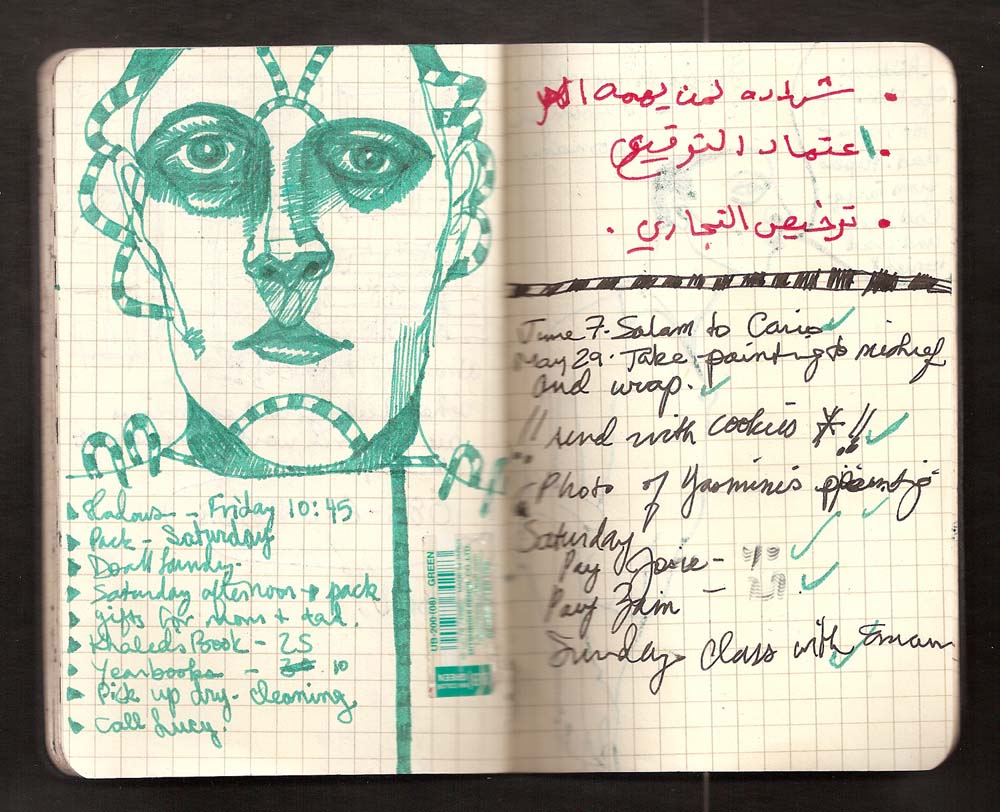 Shadows - Friday 10:45
Pack - Saturday
Do all laundry.
Saturday afternoon → pack
gifts for mom +
Khaleds Book - 25
Yearbooks - 10
Pick up dry-cleaning
Call Lucy.
UB-200(08) GREEN
GREEN
• شهاده لمن يهمه الأمر
• اعتماد التوقيع
• ترخيص التجاري .
June 7 - Salam to Cairo
May 29 - Take painting to mishref
and wrap.
!! send with cookies * !!
- Photo of Yasmine's painting
Saturday
Pay Josie -
Pay Zain -
Sunday class with Eman